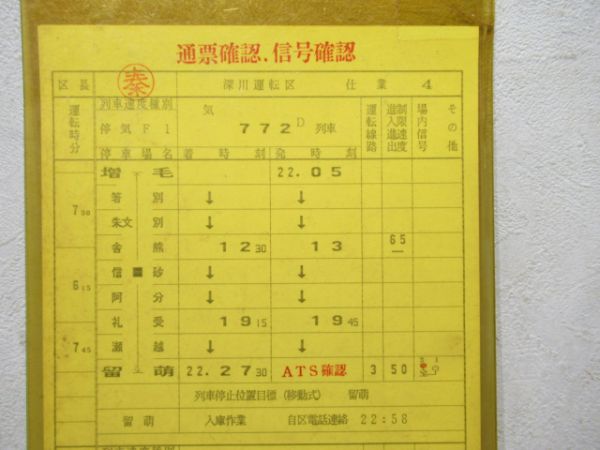 通票確認、信号確認
区長 秦 深川運転区 仕業 4
運転時分 列車速度種別 気 運転線路 制限速度 進入進出 場内信号 その他
停気F1 772D 列車
停車場名 着時刻 発時刻
増毛 22.05
箸別 ↓ ↓
7 30
朱文別 ↓ ↓
舎熊 12 30 13 65
信砂 ↓ ↓
6 15
阿分 ↓ ↓
礼受 19 15 19 45
7 45 瀬越 ↓ ↓
留萌 22.27 30 ATS確認 3 50
列車停止位置目標(移動式) 留萌
留萌 入庫作業 自区電話連絡 22:58